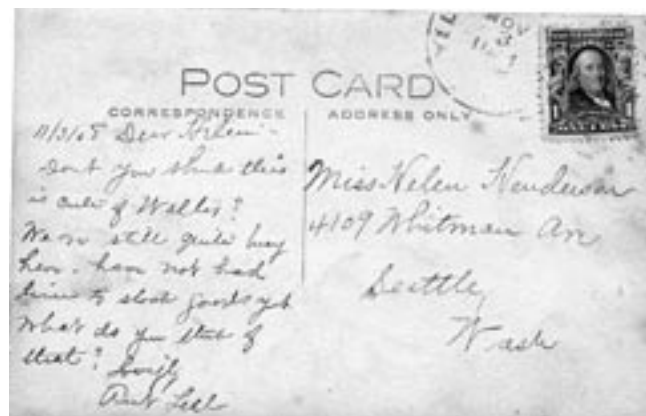 POST CARD
CORRESPONDENCE
ADDRESS ONLY
NOV
3
11/3/08 Dear Helen:-
Don't you think this
is cute of Walter?
We are still quite busy
here. have not had
time to
What do you think of
that? Lovingly
Aunt
Miss Helen Henderson
4109 Whitman Ave
Seattle,
Wash
1